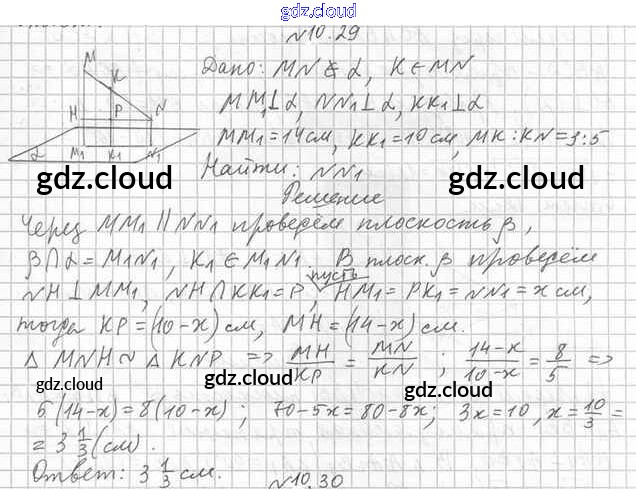 gdz.cloud
№10.29
M
K
H P N
α M₁ K₁ N₁
Дано: MN ⊄ α, K ∈ MN
MM₁ ⊥ α, NN₁ ⊥ α, KK₁ ⊥ α
MM₁ = 14 см, KK₁ = 10 см, MK : KN = 3 : 5
Найти: NN₁
gdz.cloud gdz.cloud
Решение
Через MM₁ || NN₁ проведём плоскость β,
β ∩ α = M₁N₁, K₁ ∈ M₁N₁. В плоск. β проведём
пусть
NH ⊥ MM₁, NH ∩ KK₁ = P, HM₁ = PK₁ = NN₁ = x см,
gdz.cloud gdz.cloud
тогда KP = (10 - x) см, MH = (14 - x) см.
△ MNH ~ △ KNP => MH/KP = MN/KN ; 14-x/10-x = 8/5 =>
gdz.cloud gdz.cloud
5(14-x) = 8(10-x) ; 70-5x = 80-8x; 3x = 10, x = 10/3 =
= 3 1/3 (см).
gdz.cloud gdz.cloud
Ответ: 3 1/3 см.
№10.30